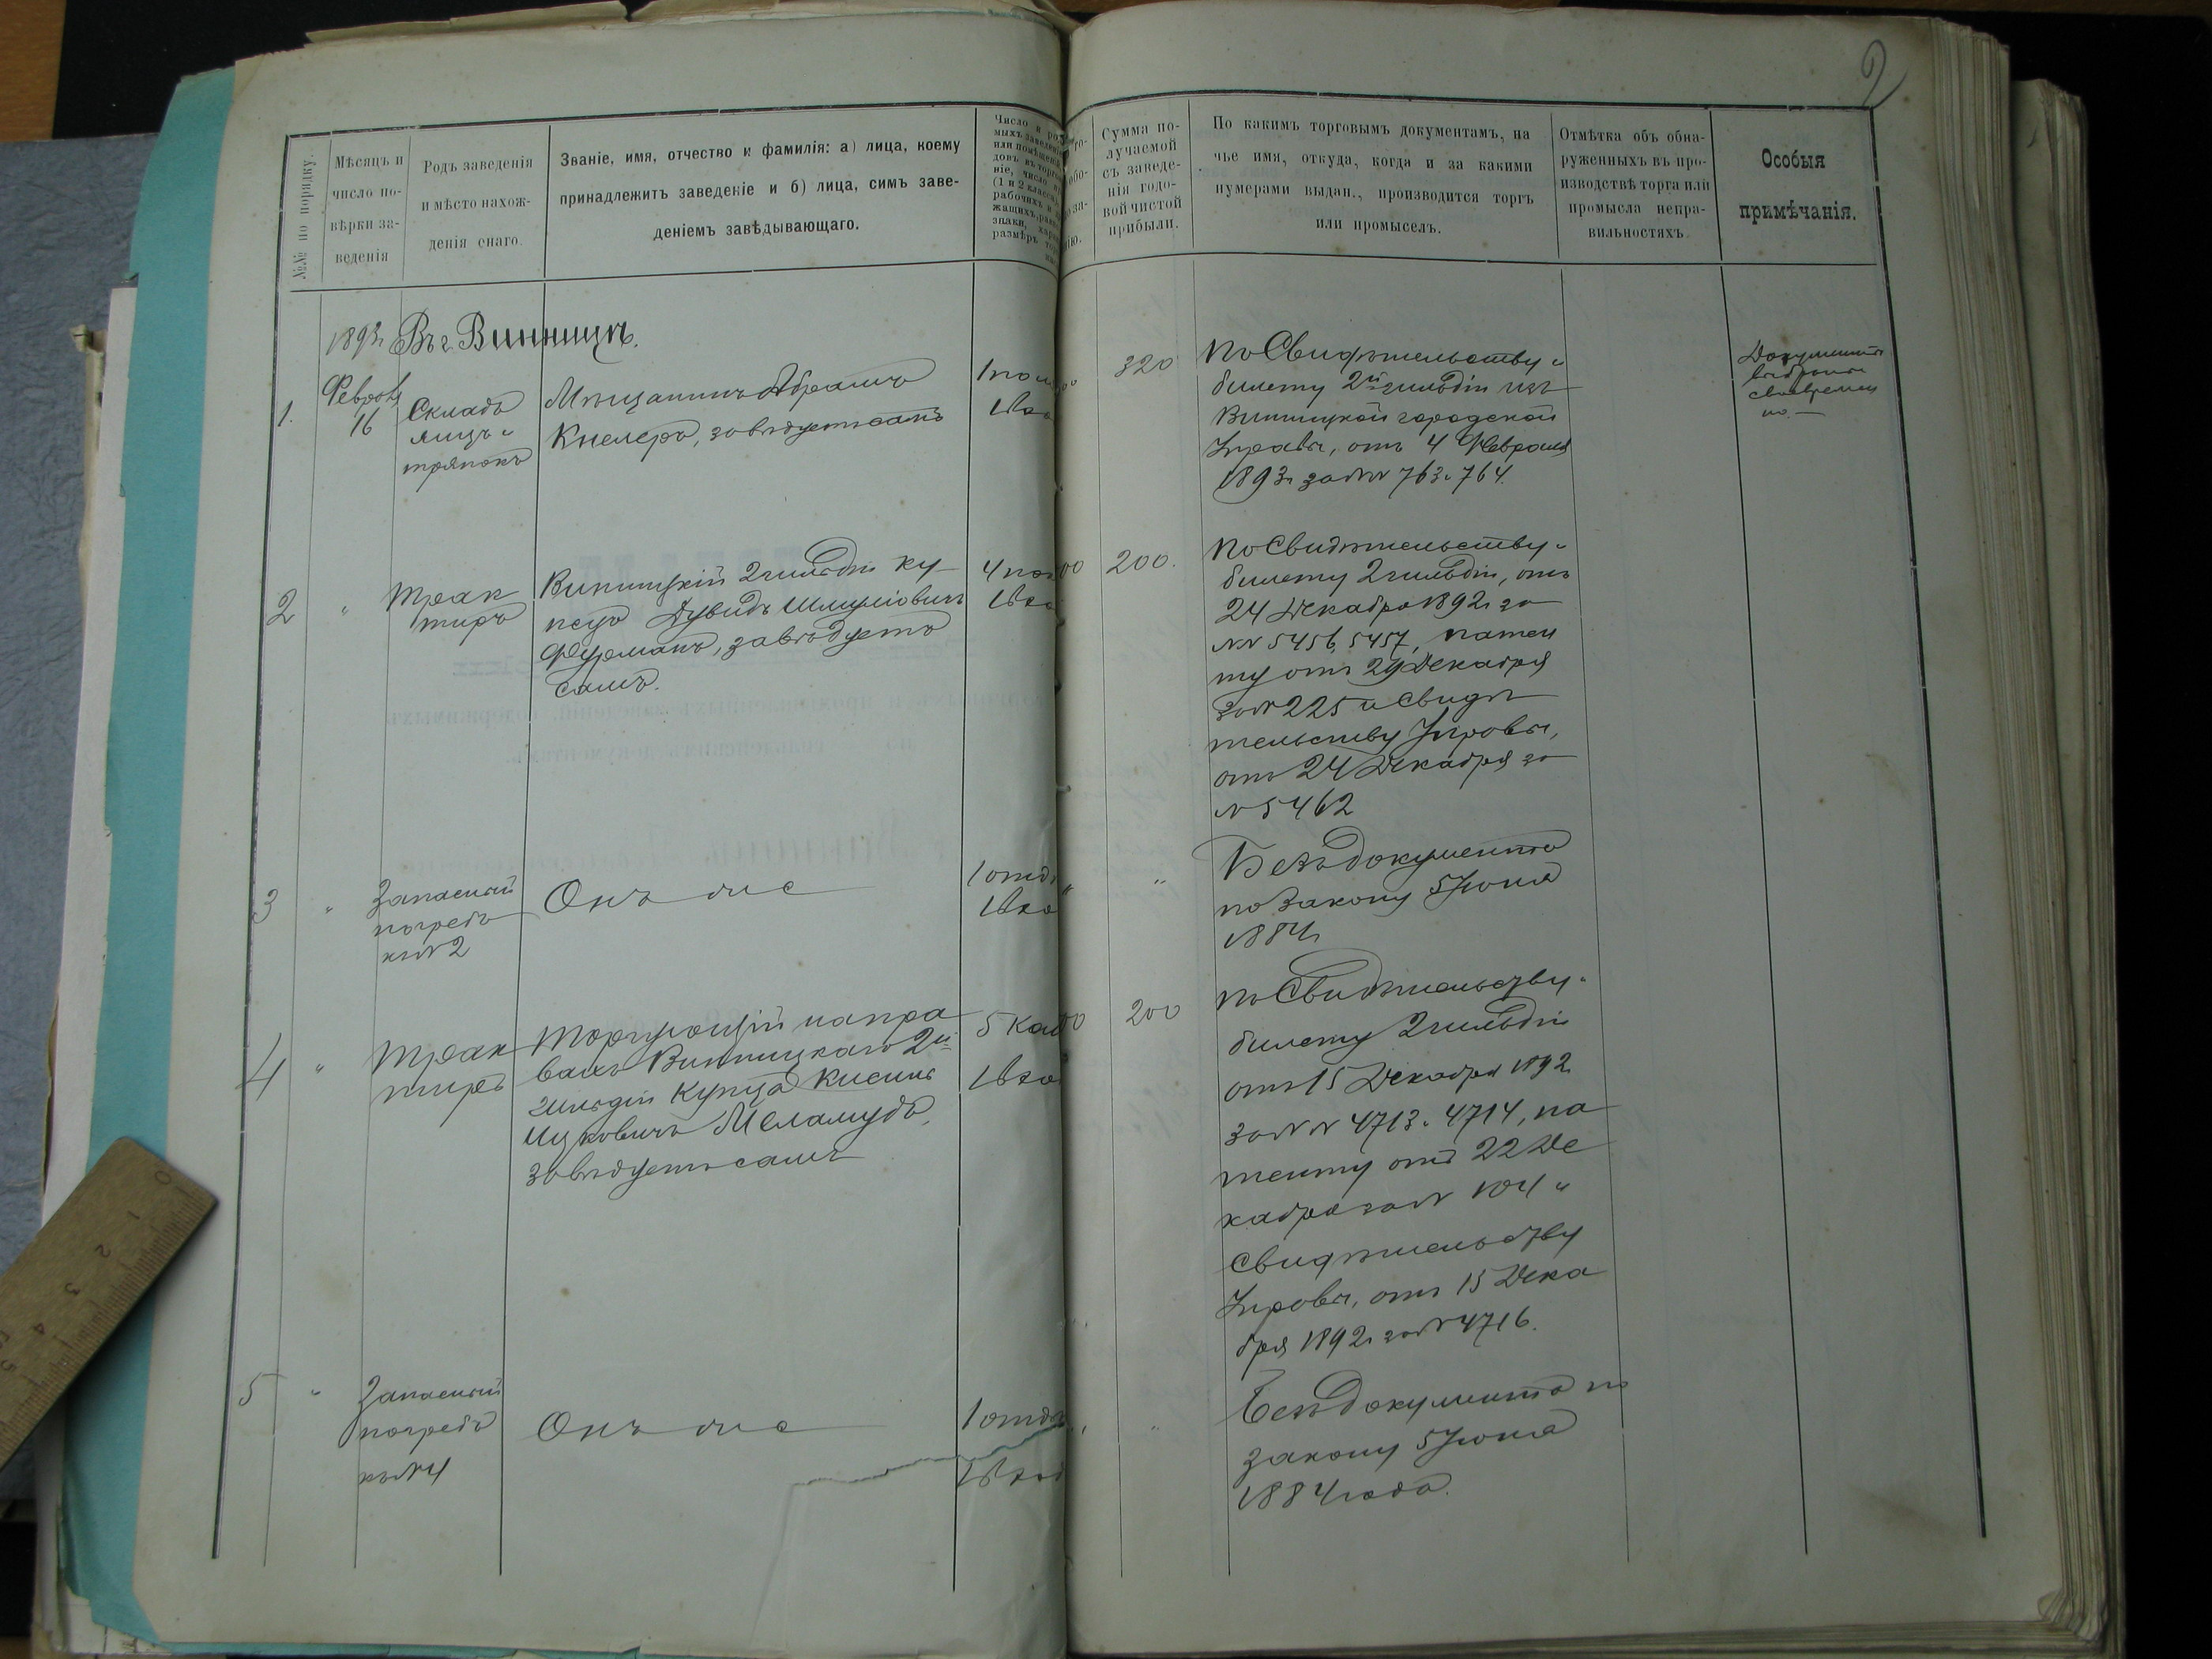 2
№№ по порядку.
Мѣсяцъ и
число по-
вѣрки за-
веденія
Родъ заведенія
и мѣсто нахож-
денія онаго.
Званіе, имя, отчество и фамилія: а) лица, коему
принадлежитъ заведеніе и б) лица, симъ заве-
деніемъ завѣдывающаго.
Число и
мыхъ заведеній
или помѣщеній
довъ въ торгов
ніе, число
(1 и 2 класса),
рабочихъ и
жащихъ,
знаки,
размѣръ
Сумма по-
лучаемой
съ заведе-
нія годо-
вой чистой
прибыли.
По какимъ торговымъ документамъ, на
чье имя, откуда, когда и за какими
нумерами выдан., производится торгъ
или промыселъ.
Отмѣтка объ обна-
руженныхъ въ про-
изводствѣ торга или
промысла непра-
вильностяхъ.
Особыя
примѣчанія.
1893г Въ г. Винницѣ.
1.
Февраля
16
Складъ
яицъ и
тряпокъ
Мѣщанинъ Абрамъ
Кнелеръ, завѣдуетъ самъ
1 пом
1 вхо
320
По Свидѣтельству и
билету 2й гильдіи изъ
Винницкой городской
Управы, отъ 4 Февраля
1893г за №№ 763 и 764.
Документы
выбраны
своевремен
но. —
2
"
Трак
тиръ
Винницкій 2 гильдіи ку
пецъ Дувидъ Шлиомовичъ
Фурманъ, завѣдуетъ
самъ.
4 пок
1 вхо
00
200.
По Свидѣтельству и
билету 2 гильдіи, отъ
24 Декабря 1892г за
№№ 5456, 5457, патен
ту отъ 29 Декабря
за № 225 и Свидѣ
тельству Управы,
отъ 24 Декабря за
№ 5462
3
"
Запасный
погребъ
къ № 2
Онъ же
1 отд
1 вхо
"
Безъ документа
по Закону 5 Іюня
1884г
4
"
Трак
тиръ
Торгующій на пра
вахъ Винницкаго 2й
гильдіи Купца Кисиль
Ицковичъ Меламудъ,
завѣдуетъ самъ
5 ком
1 вхо
00
200
По Свидѣтельству и
билету 2 гильдіи
отъ 15 Декабря 1892
за №№ 4713 и 4714, па
тенту отъ 22 Де
кабря за № 104 и
Свидѣтельству
Управы, отъ 15 Дека
бря 1892г за № 4716.
5
"
Запасный
погребъ
къ № 4
Онъ же
1 отд
1 вход
"
Безъ документа по
Закону 5 Іюня
1884 года.